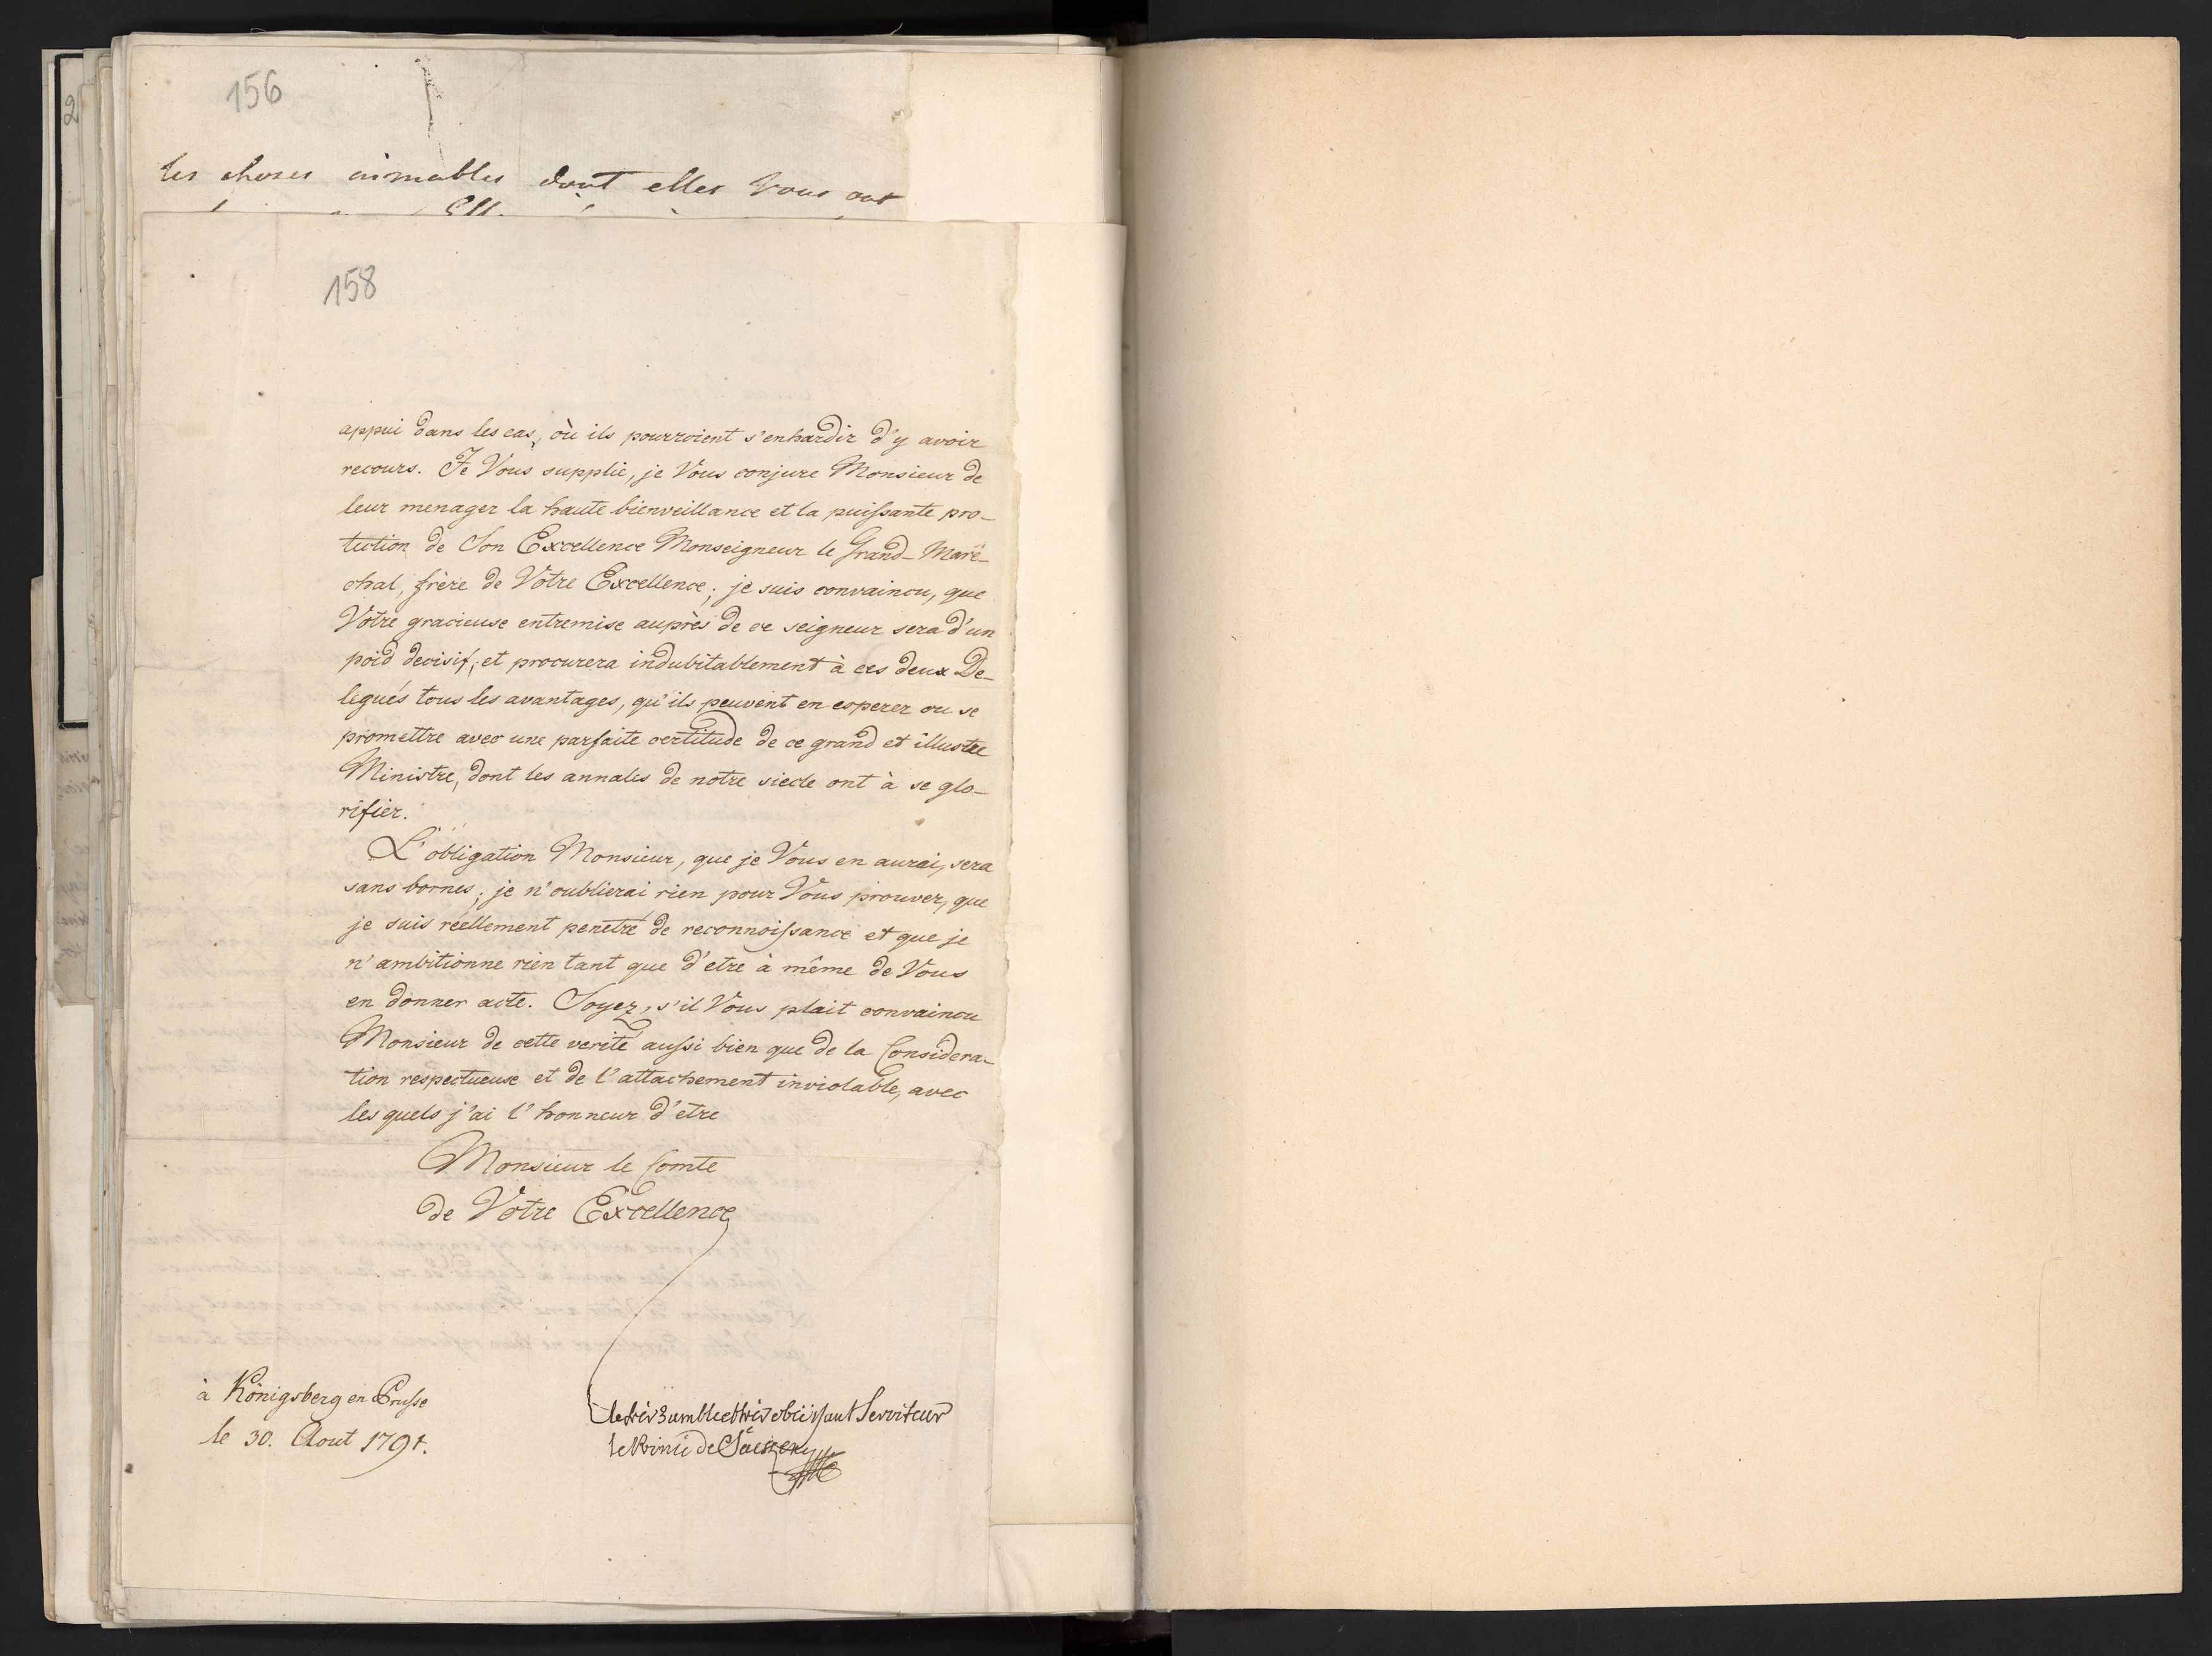 156
les choses aimables dont elles vous ont
158
appui dans les cas, où ils pourroient s'enhardir d'y avoir
recours. Je Vous supplie, je Vous conjure Monsieur de
leur menager la haute bienveillance et la puissante pro-
tection de Son Excellence Monseigneur le Grand-Maré-
chal, frère de Votre Excellence; je suis convaincu, que
Votre gracieuse entremise auprès de ce seigneur sera d'un
poid decisif, et procurera indubitablement à ces deux De-
legués tous les avantages, qu'ils peuvent en esperer ou se
promettre avec une parfaite certitude de ce grand et illustre
Ministre, dont les annales de notre siecle ont à se glo-
rifier.
L'obligation Monsieur, que je Vous en aurai, sera
sans bornes; je n'oublierai rien pour Vous prouver, que
je suis réellement penetré de reconnoissance et que je
n'ambitionne rien tant que d'etre à même de Vous
en donner acte. Soyez, s'il Vous plait convaincu
Monsieur de cette verité aussi bien que de la Considera-
tion respectueuse et de l'attachement inviolable, avec
les quels j'ai l'honneur d'etre
Monsieur le Comte
de Votre Excellence
à Königsberg en Prusse
le 30. Aout 1791.
le très humble et très obéissant Serviteur
le de
2